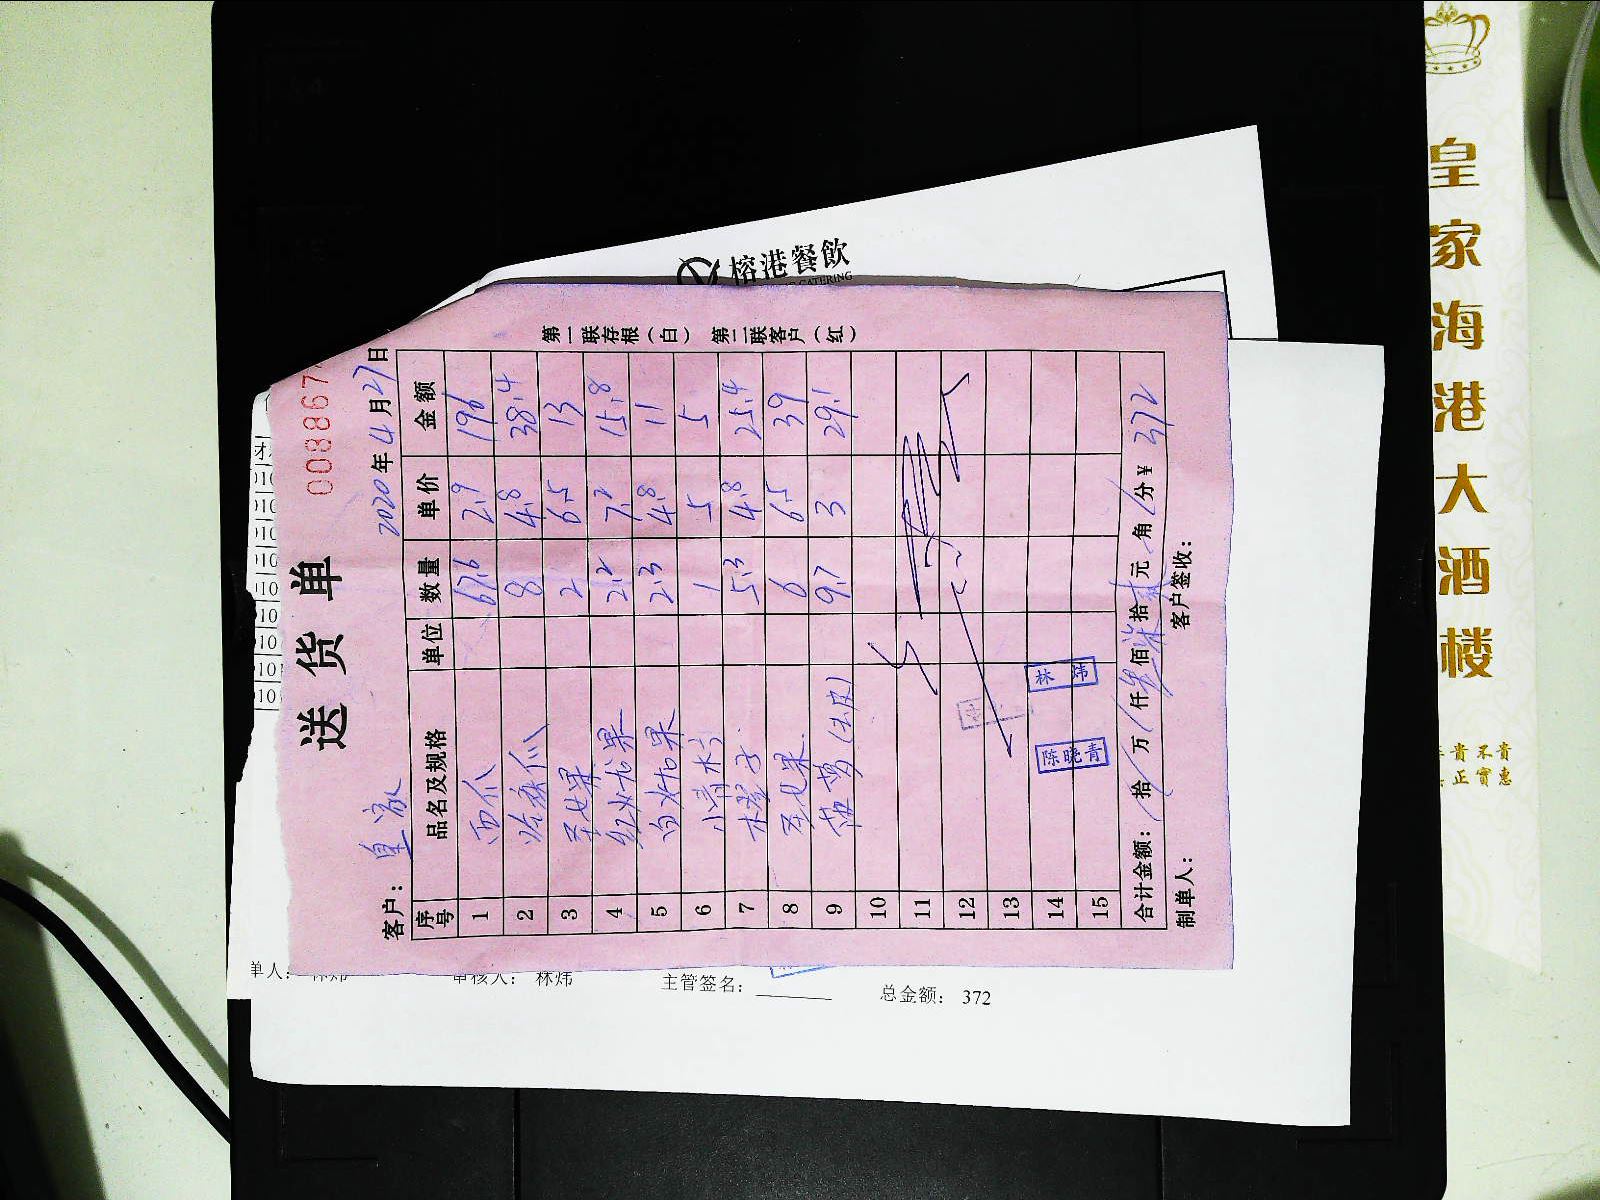 榕港餐飲
CATERING
送货单
008867
客户: 皇家
2020年4月27日
序号 品名及规格 单位 数量 单价 金额
1 西瓜 67.6 2.9 196
2 哈密瓜 8 4.8 38.4
3 圣女果 2 6.5 13
4 红火龙果 2.2 7.2 15.8
5 白火龙果 2.3 4.8 11
6 小青柠 1 5 5
7 橙子 5.3 4.8 25.4
8 圣女果 6 6.5 39
9 9.7 3 29.1
10
11
12
13
14
15
林炜
陈晓青
合计金额: 拾 万 仟 叁佰柒拾贰元 角 分 ¥ 372
制单人:
客户签收:
第一联存根(白) 第二联客户(红)
单人: 林炜 审核人: 林炜 主管签名: 总金额: 372
皇家海港大酒楼